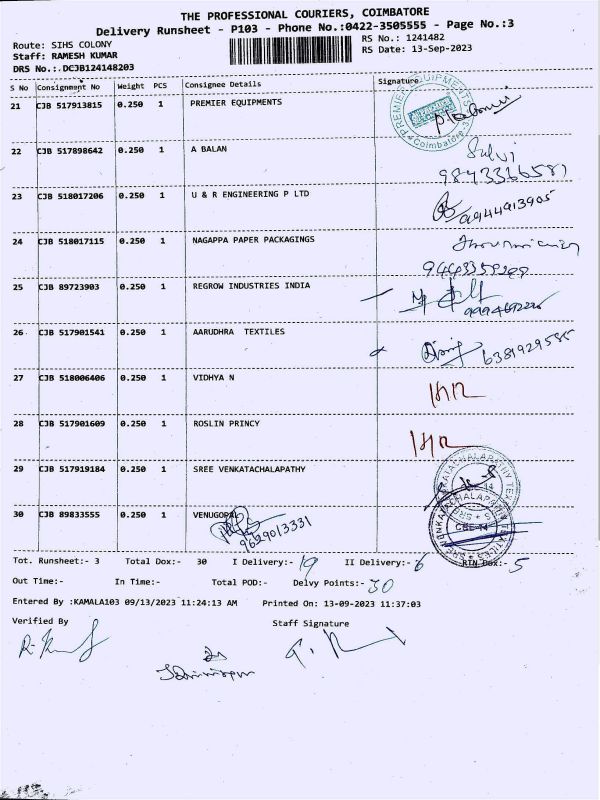 THE PROFESSIONAL COURIERS, COIMBATORE
Delivery Runsheet - P103 - Phone No.:0422-3505555 - Page No.:3
Route: SIHS COLONY RS No.: 1241482
Staff: RAMESH KUMAR RS Date: 13-Sep-2023
DRS No.:.DCJB124148203
S No Consignment No Weight PCS Consignee Details Signature
21 CJB 517913815 0.250 1 PREMIER EQUIPMENTS
PREMIER EQUIPMENTS
Coimbatore
22 CJB 517898642 0.250 1 A BALAN
Selvi
9843366581
23 CJB 518017206 0.250 1 U & R ENGINEERING P LTD
9944913905
24 CJB 518017115 0.250 1 NAGAPPA PAPER PACKAGINGS
25 CJB 89723903 0.250 1 REGROW INDUSTRIES INDIA
26 CJB 517901541 0.250 1 AARUDHRA TEXTILES
6381929585
27 CJB 518006406 0.250 1 VIDHYA N
28 CJB 517901609 0.250 1 ROSLIN PRINCY
29 CJB 517919184 0.250 1 SREE VENKATACHALAPATHY
30 CJB 89833555 0.250 1 VENUGOPAL
9629013331
SREE VENKATACHALAPATHY TEXTILES
CBE-14
Tot. Runsheet:- 3 Total Dox:- 30 I Delivery:- 19 II Delivery:- 6 RTN Dox:- 5
Out Time:- In Time:- Total POD:- Delvy Points:- 30
Entered By :KAMALA103 09/13/2023 11:24:13 AM Printed On: 13-09-2023 11:37:03
Verified By Staff Signature